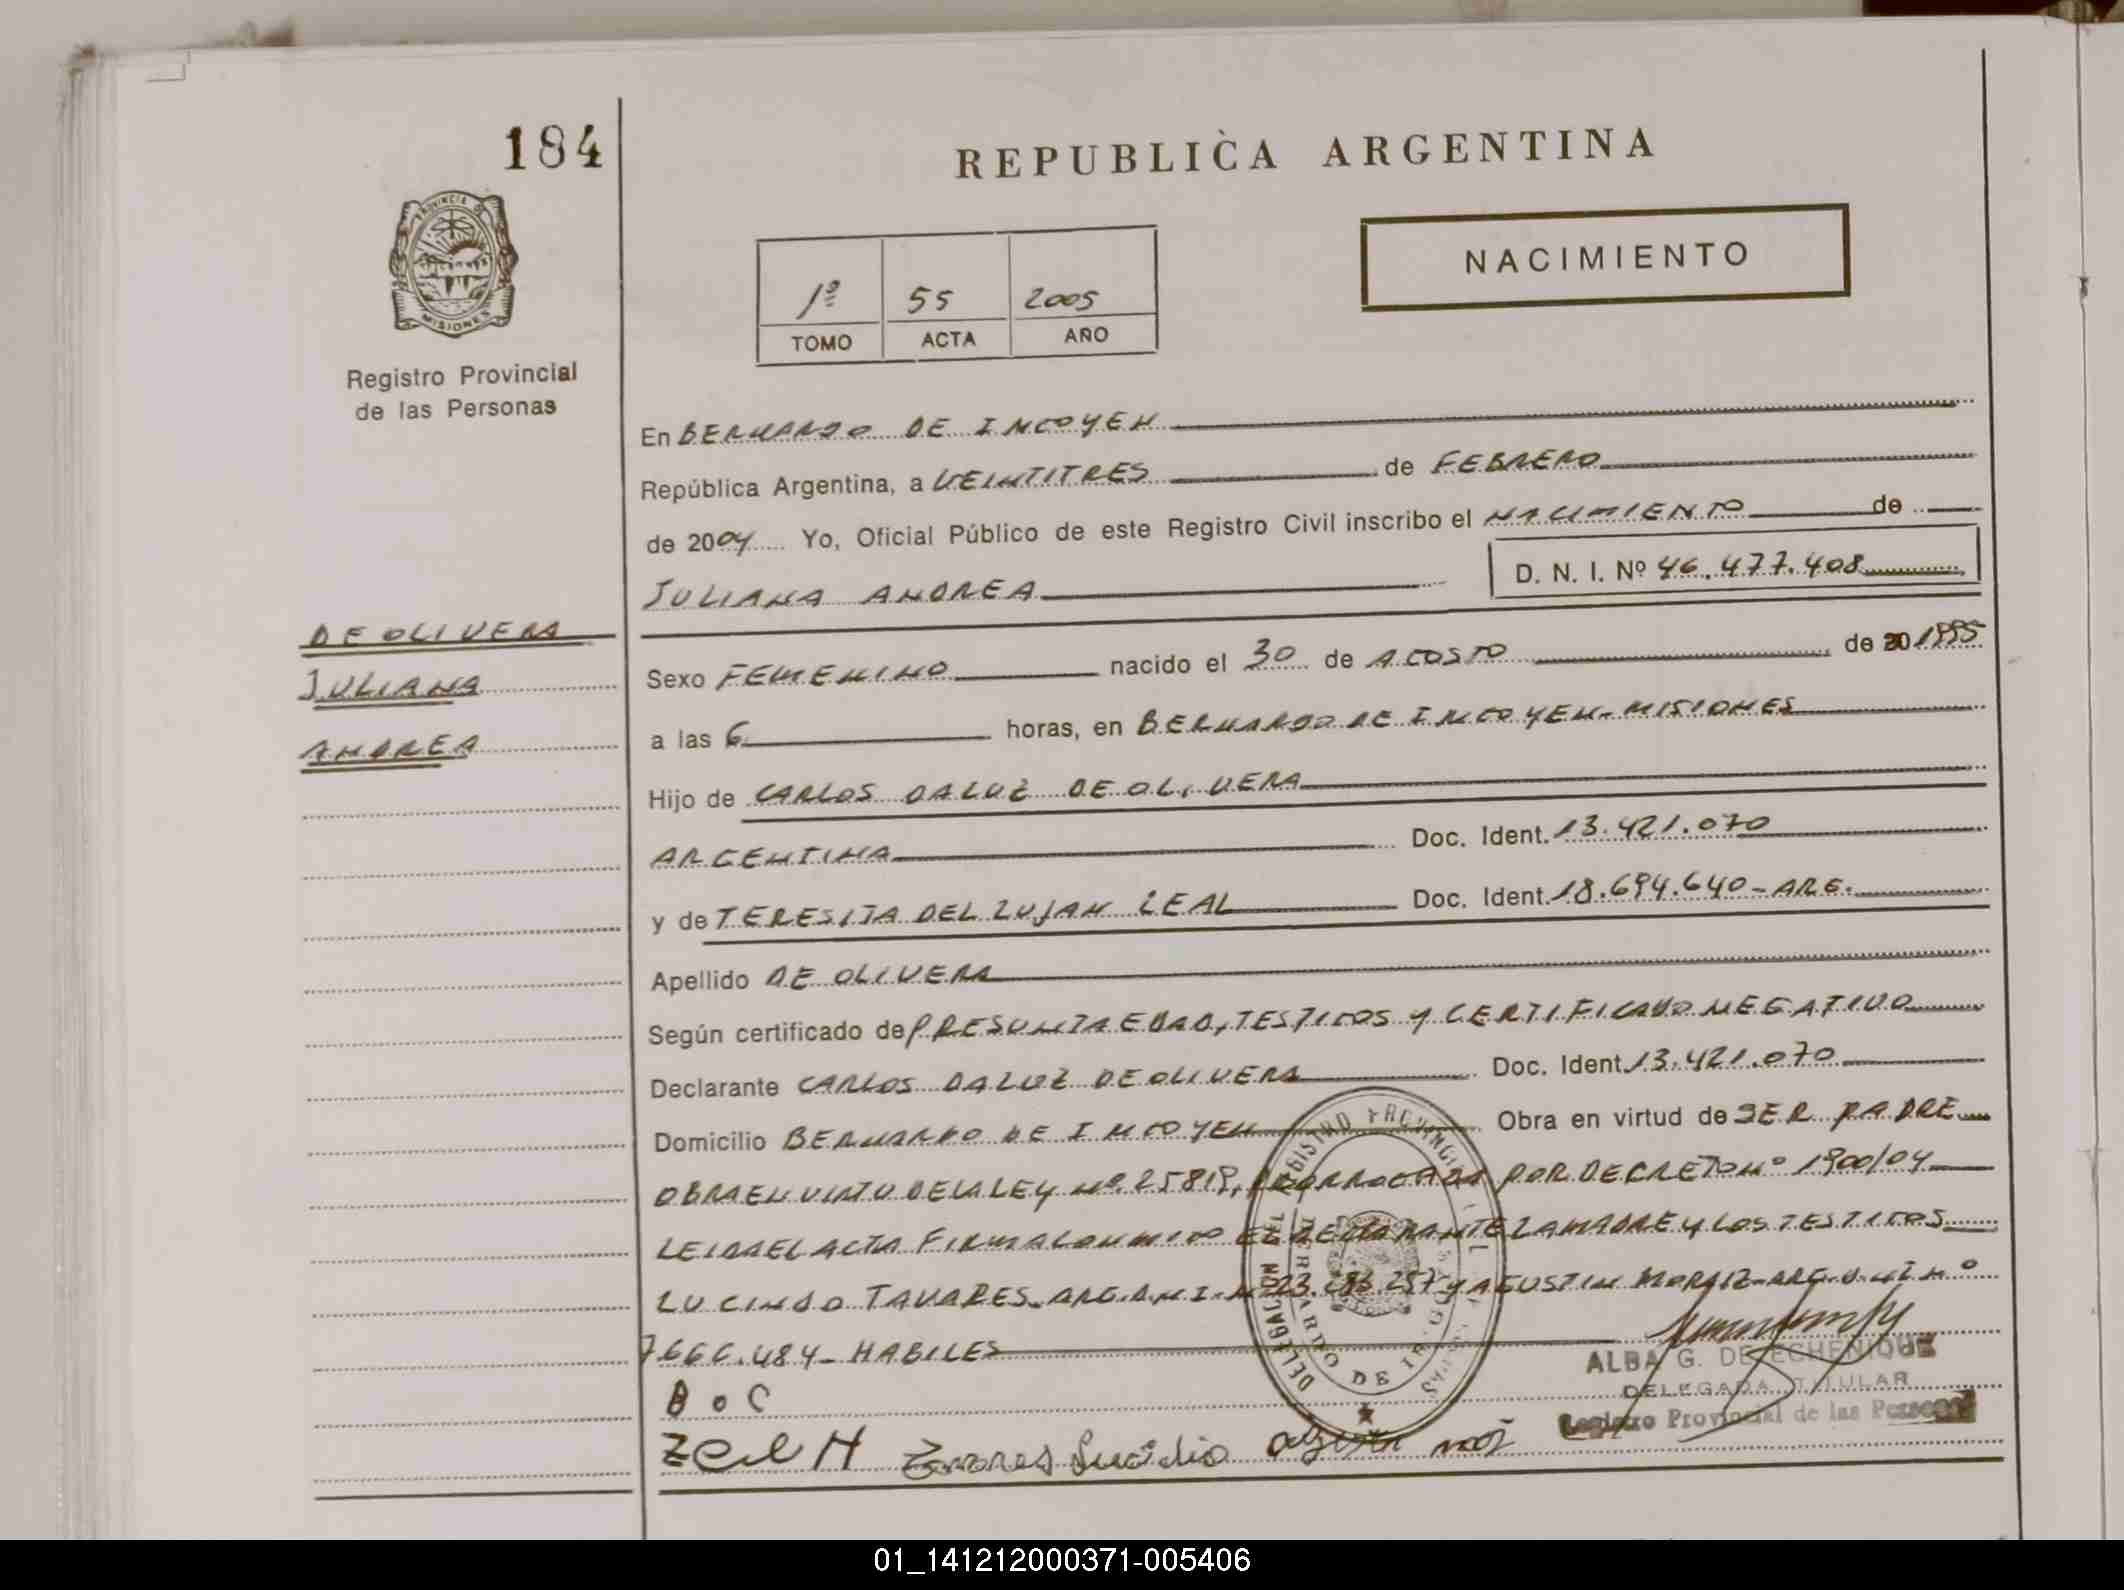 184
REPUBLICA ARGENTINA
PROVINCIA DE
MISIONES
Registro Provincial
de las Personas
1º 55 2005
TOMO ACTA AÑO
NACIMIENTO
En BERNARDO DE IRIGOYEN
República Argentina, a VEINTITRES de FEBRERO
de 2004 Yo, Oficial Público de este Registro Civil inscribo el NACIMIENTO de
JULIANA ANDREA
D. N. I. Nº 46.477.408
DE OLIVERA
JULIANA
ANDREA
Sexo FEMENINO nacido el 30 de AGOSTO de 20 1995
a las 6 horas, en BERNARDO DE IRIGOYEN - MISIONES
Hijo de CARLOS DALUZ DE OLIVERA
ARGENTINA Doc. Ident. 13.421.070
y de TERESITA DEL LUJAN LEAL Doc. Ident. 18.694.640 - ARG.
Apellido DE OLIVERA
Según certificado de PRESUNTA EDAD, TESTIGOS Y CERTIFICADO NEGATIVO
Declarante CARLOS DALUZ DE OLIVERA Doc. Ident. 13.421.070
Domicilio BERNARDO DE IRIGOYEN Obra en virtud de SER PADRE
OBRA EN VIRTU DE LA LEY Nº 25819, PRORROGADA POR DECRETO Nº 1900/04
LEIDA EL ACTA FIRMA CONMIGO EL DECLARANTE LA MADRE Y LOS TESTIGOS
LUCINDO TAVARES - ARG. D.N.I. Nº 23. 257 Y AGUSTIN ARG. D.N.I. Nº
7.666.484 - HABILES
DELEGACION DEL REGISTRO PROVINCIAL DE LAS PERSONAS
BERNARDO DE IRIGOYEN
ALBA G. DE ECHENIQUE
DELEGADA TITULAR
Registro Provincial de las Personas
01_141212000371-005406